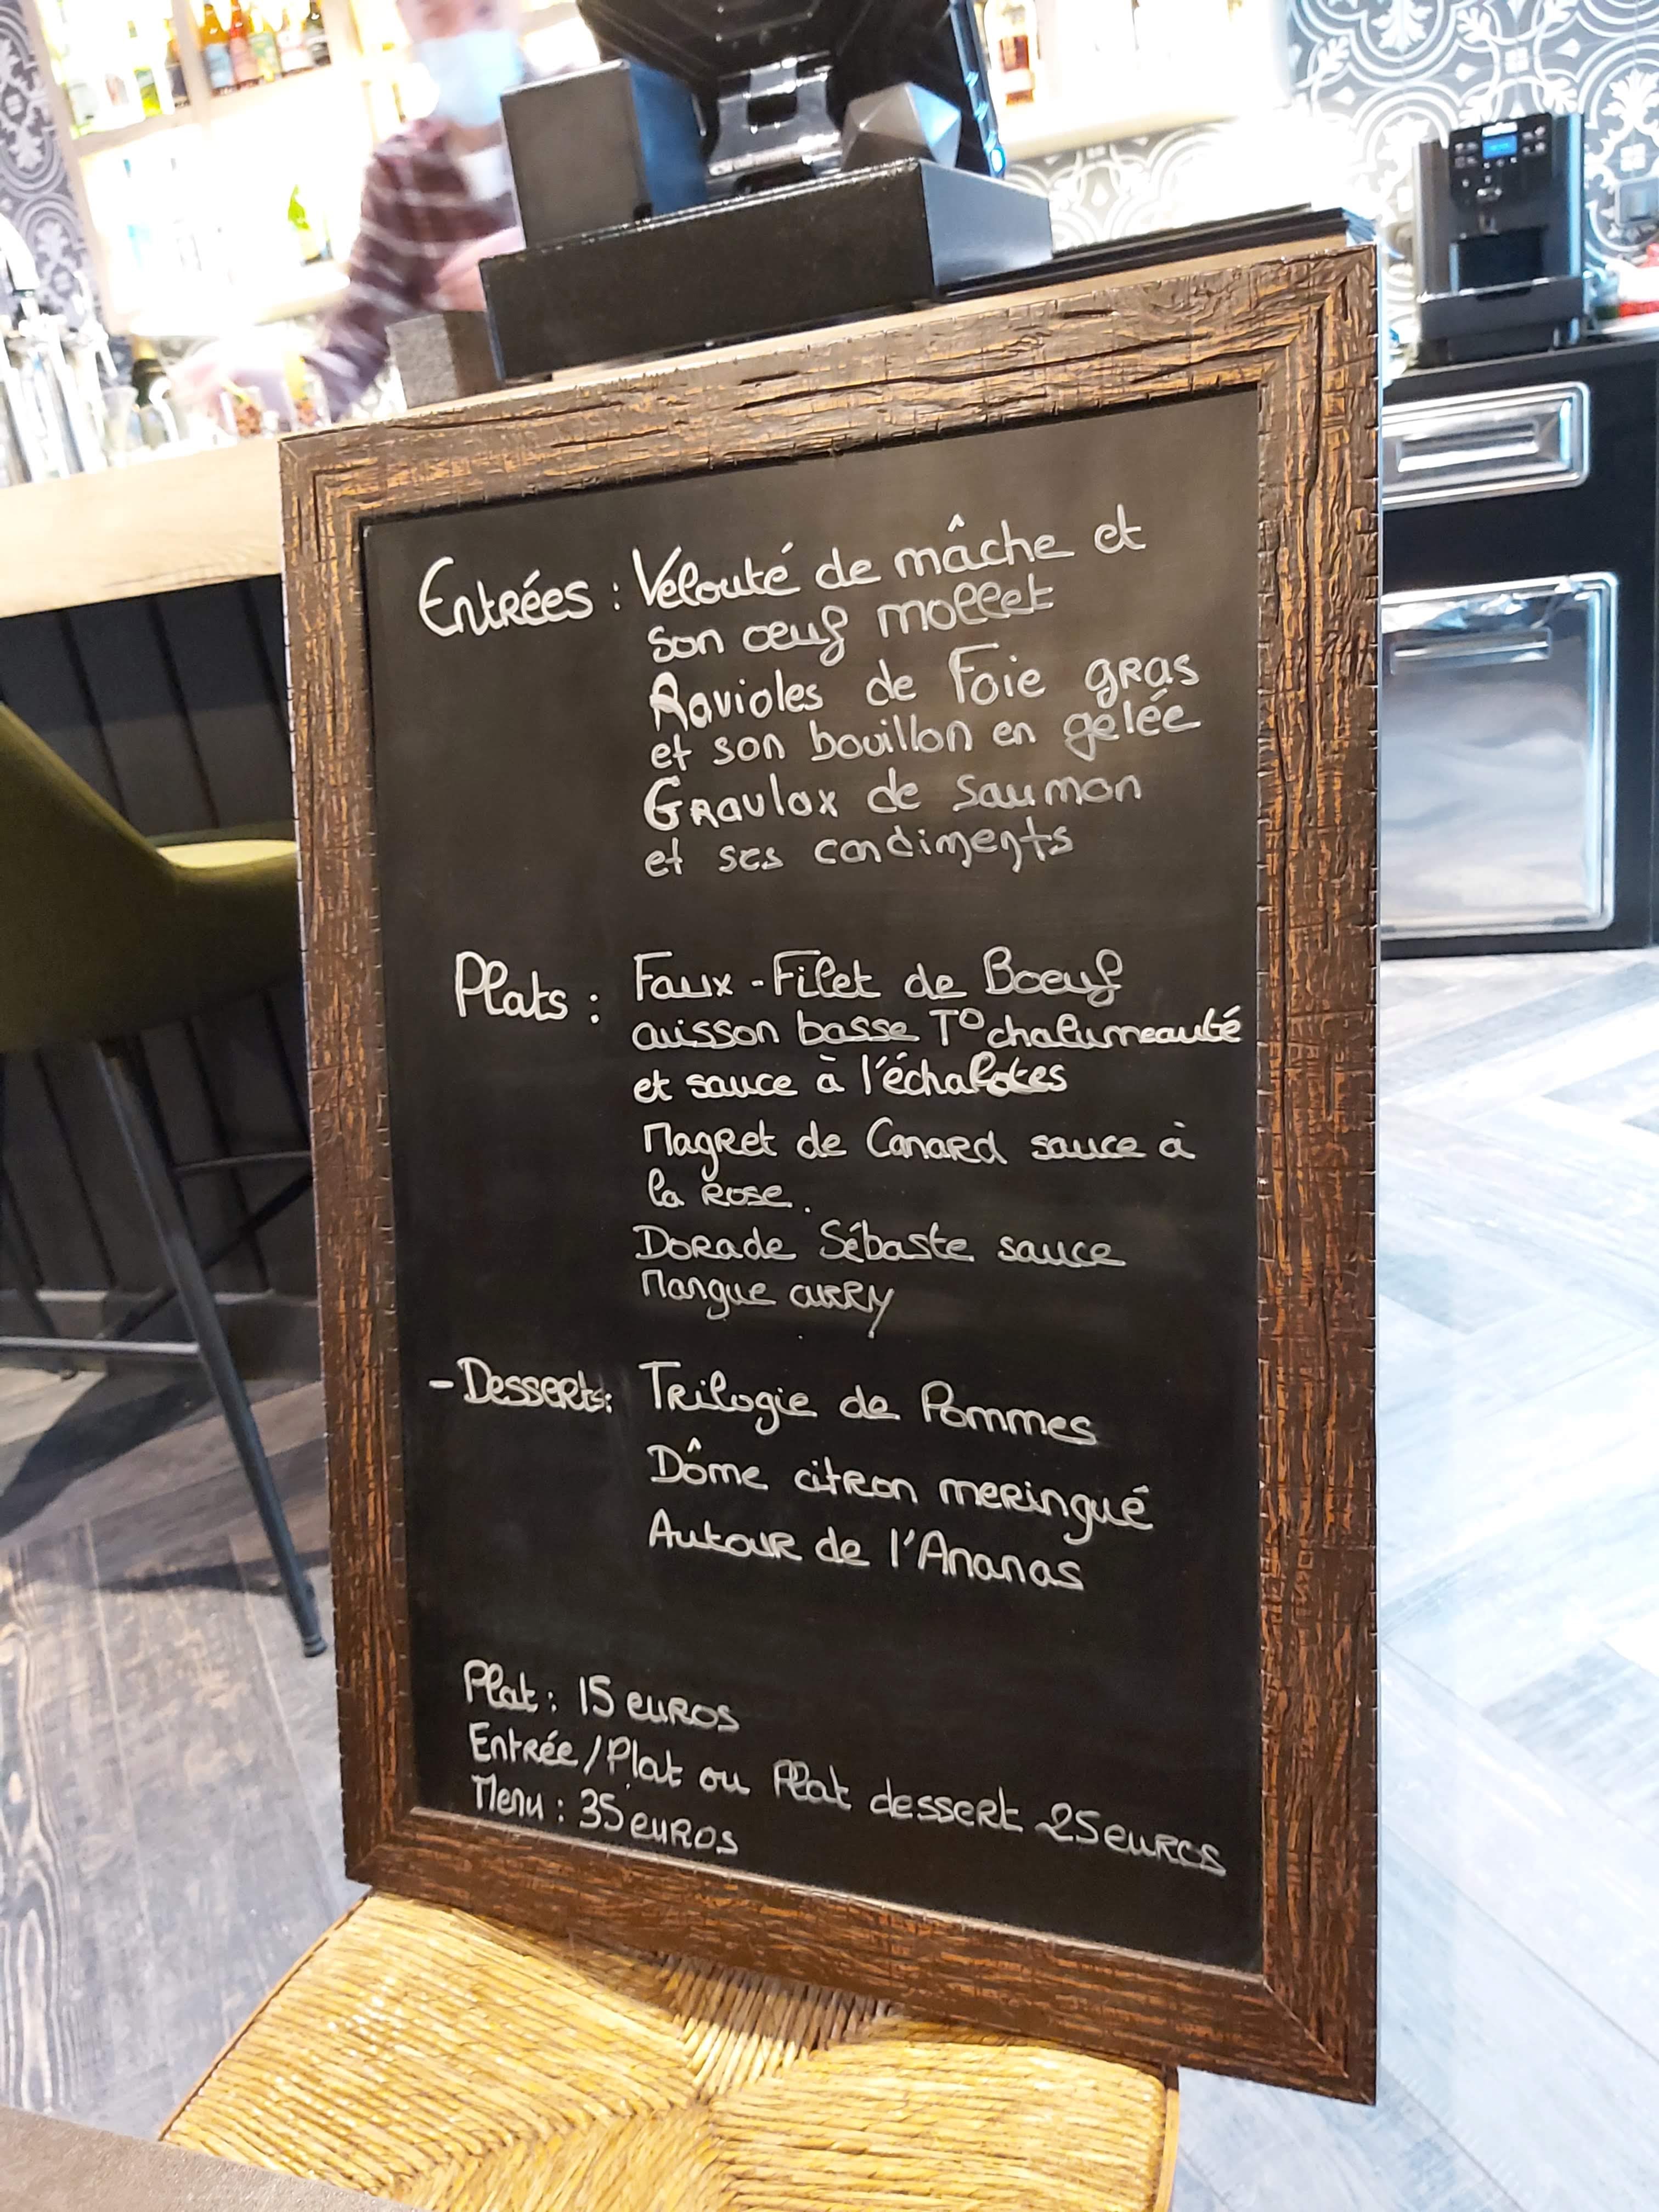 Entrées : Velouté de mâche et
son œuf mollet
Ravioles de Foie gras
et son bouillon en gelée
Gravlax de saumon
et ses condiments
Plats : Faux-Filet de Boeuf
cuisson basse T° chalumeauté
et sauce à l'échalotes
Magret de Canard sauce à
la Rose.
Dorade Sébaste sauce
Mangue curry
- Desserts: Trilogie de Pommes
Dôme citron meringué
Autour de l'Ananas
Plat : 15 euros
Entrée / Plat ou Plat dessert 25 euros
Menu : 35 euros